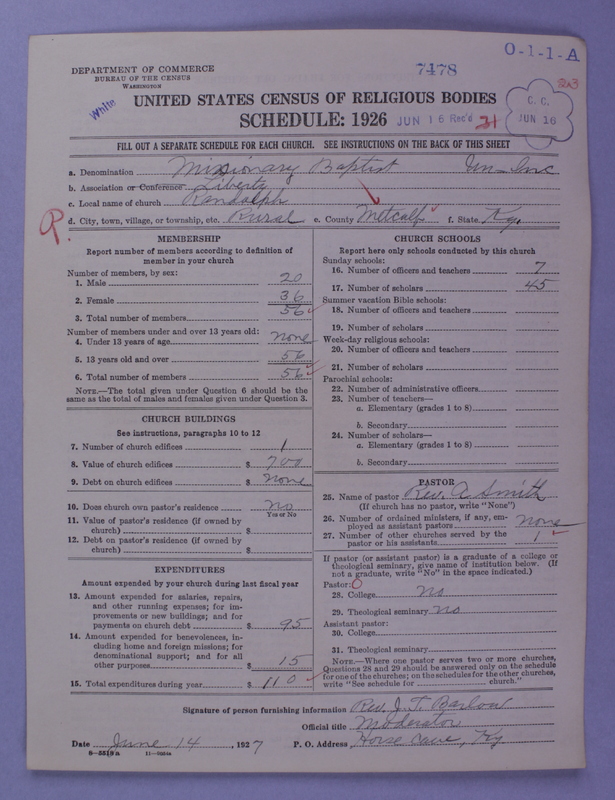 O-1-1-A
DEPARTMENT OF COMMERCE
BUREAU OF THE CENSUS
WASHINGTON
7478
263
White
UNITED STATES CENSUS OF RELIGIOUS BODIES
SCHEDULE: 1926
JUN 16 Rec'd 31
C. C.
JUN 16
FILL OUT A SEPARATE SCHEDULE FOR EACH CHURCH. SEE INSTRUCTIONS ON THE BACK OF THIS SHEET
a. Denomination Missionary Baptist Un-Inc
b. Association or Conference Liberty
c. Local name of church Randolph
d. City, town, village, or township, etc. Rural e. County Metcalf f. State Ky.
R
MEMBERSHIP
Report number of members according to definition of
member in your church
Number of members, by sex:
1. Male 20
2. Female 36
3. Total number of members 56
Number of members under and over 13 years old:
4. Under 13 years of age none
5. 13 years old and over 56
6. Total number of members 56
NOTE.—The total given under Question 6 should be the
same as the total of males and females given under Question 3.
CHURCH BUILDINGS
See instructions, paragraphs 10 to 12
7. Number of church edifices 1
8. Value of church edifices $ 700
9. Debt on church edifices $ none
10. Does church own pastor's residence no
Yes or No
11. Value of pastor's residence (if owned by
church) $
12. Debt on pastor's residence (if owned by
church) $
EXPENDITURES
Amount expended by your church during last fiscal year
13. Amount expended for salaries, repairs,
and other running expenses; for im-
provements or new buildings; and for
payments on church debt $ 95
14. Amount expended for benevolences, in-
cluding home and foreign missions; for
denominational support; and for all
other purposes $ 15
15. Total expenditures during year $ 110
CHURCH SCHOOLS
Report here only schools conducted by this church
Sunday schools:
16. Number of officers and teachers 7
17. Number of scholars 45
Summer vacation Bible schools:
18. Number of officers and teachers
19. Number of scholars
Week-day religious schools:
20. Number of officers and teachers
21. Number of scholars
Parochial schools:
22. Number of administrative officers
23. Number of teachers—
a. Elementary (grades 1 to 8)
b. Secondary
24. Number of scholars—
a. Elementary (grades 1 to 8)
b. Secondary
PASTOR
25. Name of pastor Rev. A Smith
(If church has no pastor, write "None")
26. Number of ordained ministers, if any, em-
ployed as assistant pastors none
27. Number of other churches served by the
pastor or his assistants 1
If pastor (or assistant pastor) is a graduate of a college or
theological seminary, give name of institution below. (If
not a graduate, write "No" in the space indicated.)
Pastor: O
28. College no
29. Theological seminary no
Assistant pastor:
30. College
31. Theological seminary
NOTE.—Where one pastor serves two or more churches,
Questions 28 and 29 should be answered only on the schedule
for one of the churches; on the schedules for the other churches,
write "See schedule for church."
Signature of person furnishing information Rev. J. T. Barlow
Official title Moderator
Date June 14, 1927 P. O. Address Horse Cave, Ky
8—5319a